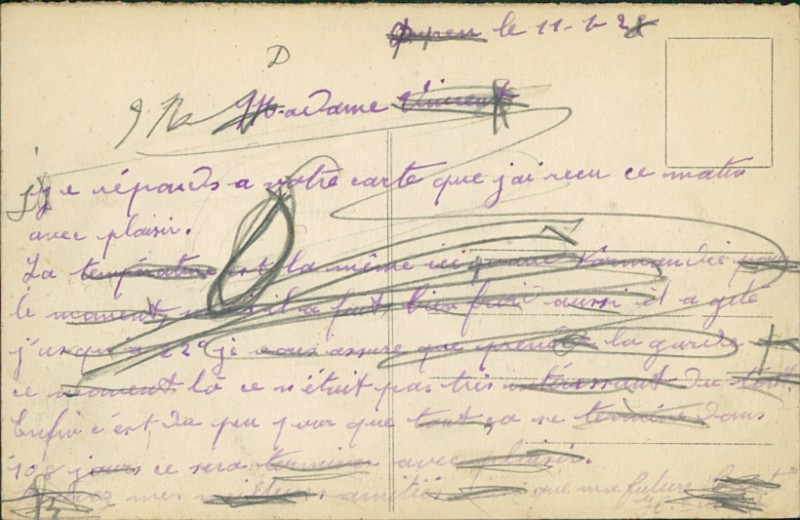 le 11-1-28
D
Madame Vincent
je réponds a votre carte que j'ai recu ce matin
avec plaisir.
La température est la même ici Normandie pour
le moment, il a fait bien froid aussi il a gelé
jusqu'a 22° je vous assure que prendre la garde
ce moment là ce n'était pas très intéressant du tout.
Enfin c'est du peu pour que tout ça se termine dans
108 jours ce sera terminer avec plaisir.
mes meilleurs amitiés que ma future